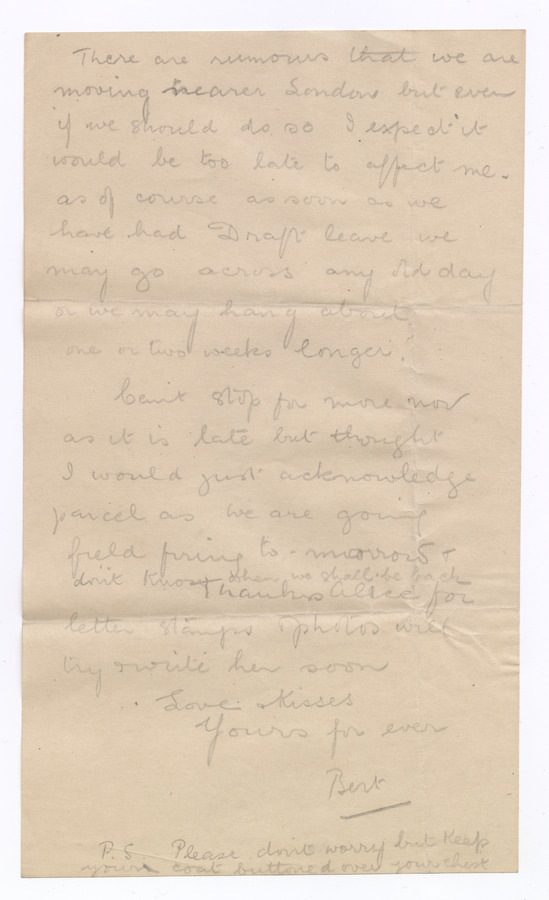 There are rumours that we are
moving nearer London but even
if we should do so I expect it
would be too late to affect me.
as of course as soon as we
have had Draft leave we
may go across any old day
or we may hang about
one or two weeks longer.
Can't stop for more now
as it is late but thought
I would just acknowledge
parcel as we are going
field firing to-morrow &
don't know when we shall be back
Thanks Alice for
letter stamps & photos will
try & write her soon
Love & Kisses
Yours for ever
Bert
P.S. Please don't worry but keep
your coat buttoned over your chest